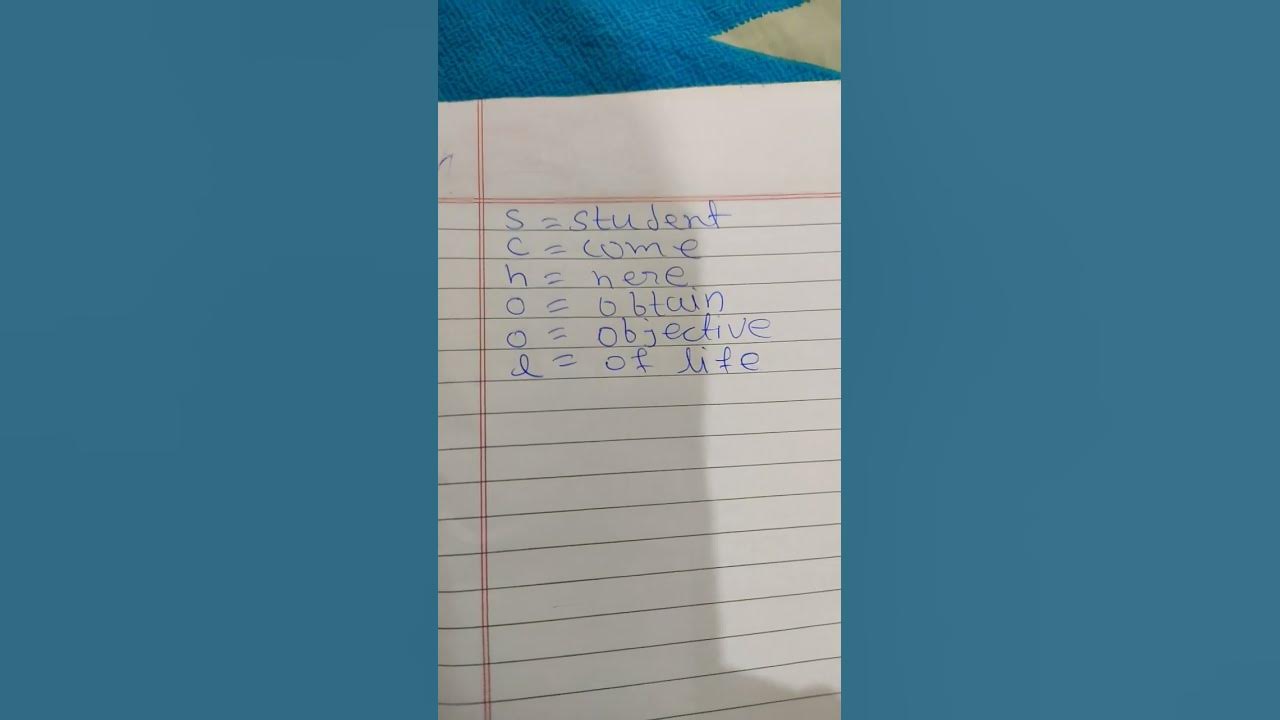 s = student
c = come
h = here
o = obtain
o = objective
l = of life